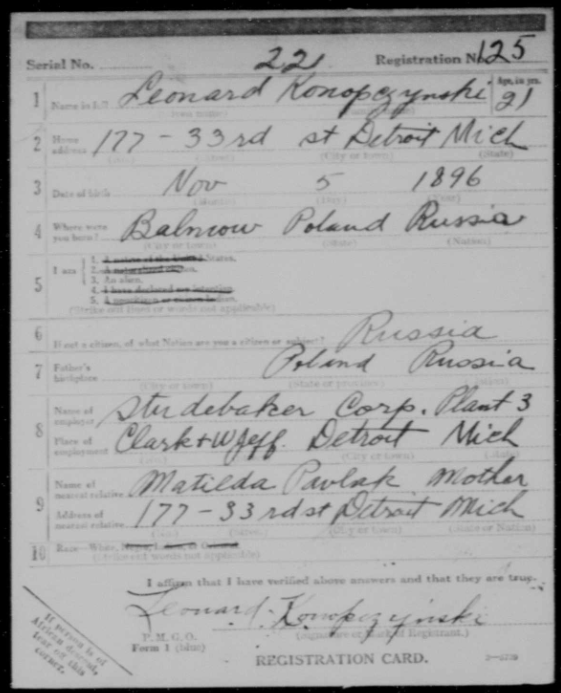 Serial No. 221 Registration No. 125
1 Name in full Leonard Konopczynski Age, in yrs. 21
2 Home address 177 - 33rd st Detroit Mich
(City or town) (State)
3 Date of birth Nov 5 1896
4 Where were you born? Balmow Poland Russia
(City or town) (State) (Nation)
5 I am 1. A native of the United States.
2. A naturalized citizen.
3. An alien.
4. I have declared my intention.
5. A noncitizen or citizen Indian.
(Strike out lines or words not applicable)
6 If not a citizen, of what Nation are you a citizen or subject? Russia
7 Father's birthplace Poland Russia
(City or town) (State or province) (Nation)
8 Name of employer Studebaker Corp. Plant 3
Place of employment Clark + W Jeff. Detroit Mich
(City or town) (State)
9 Name of nearest relative Matilda Pavlak Mother
Address of nearest relative 177 - 33rd st Detroit Mich
(City or town) (State or Nation)
10 Race—White,
(Strike out words not applicable)
I affirm that I have verified above answers and that they are true.
Leonard Konopczynski
P. M. G. O. (Signature or mark of Registrant.)
Form 1 (blue) REGISTRATION CARD.
If person is of
African descent,
tear off this
corner.